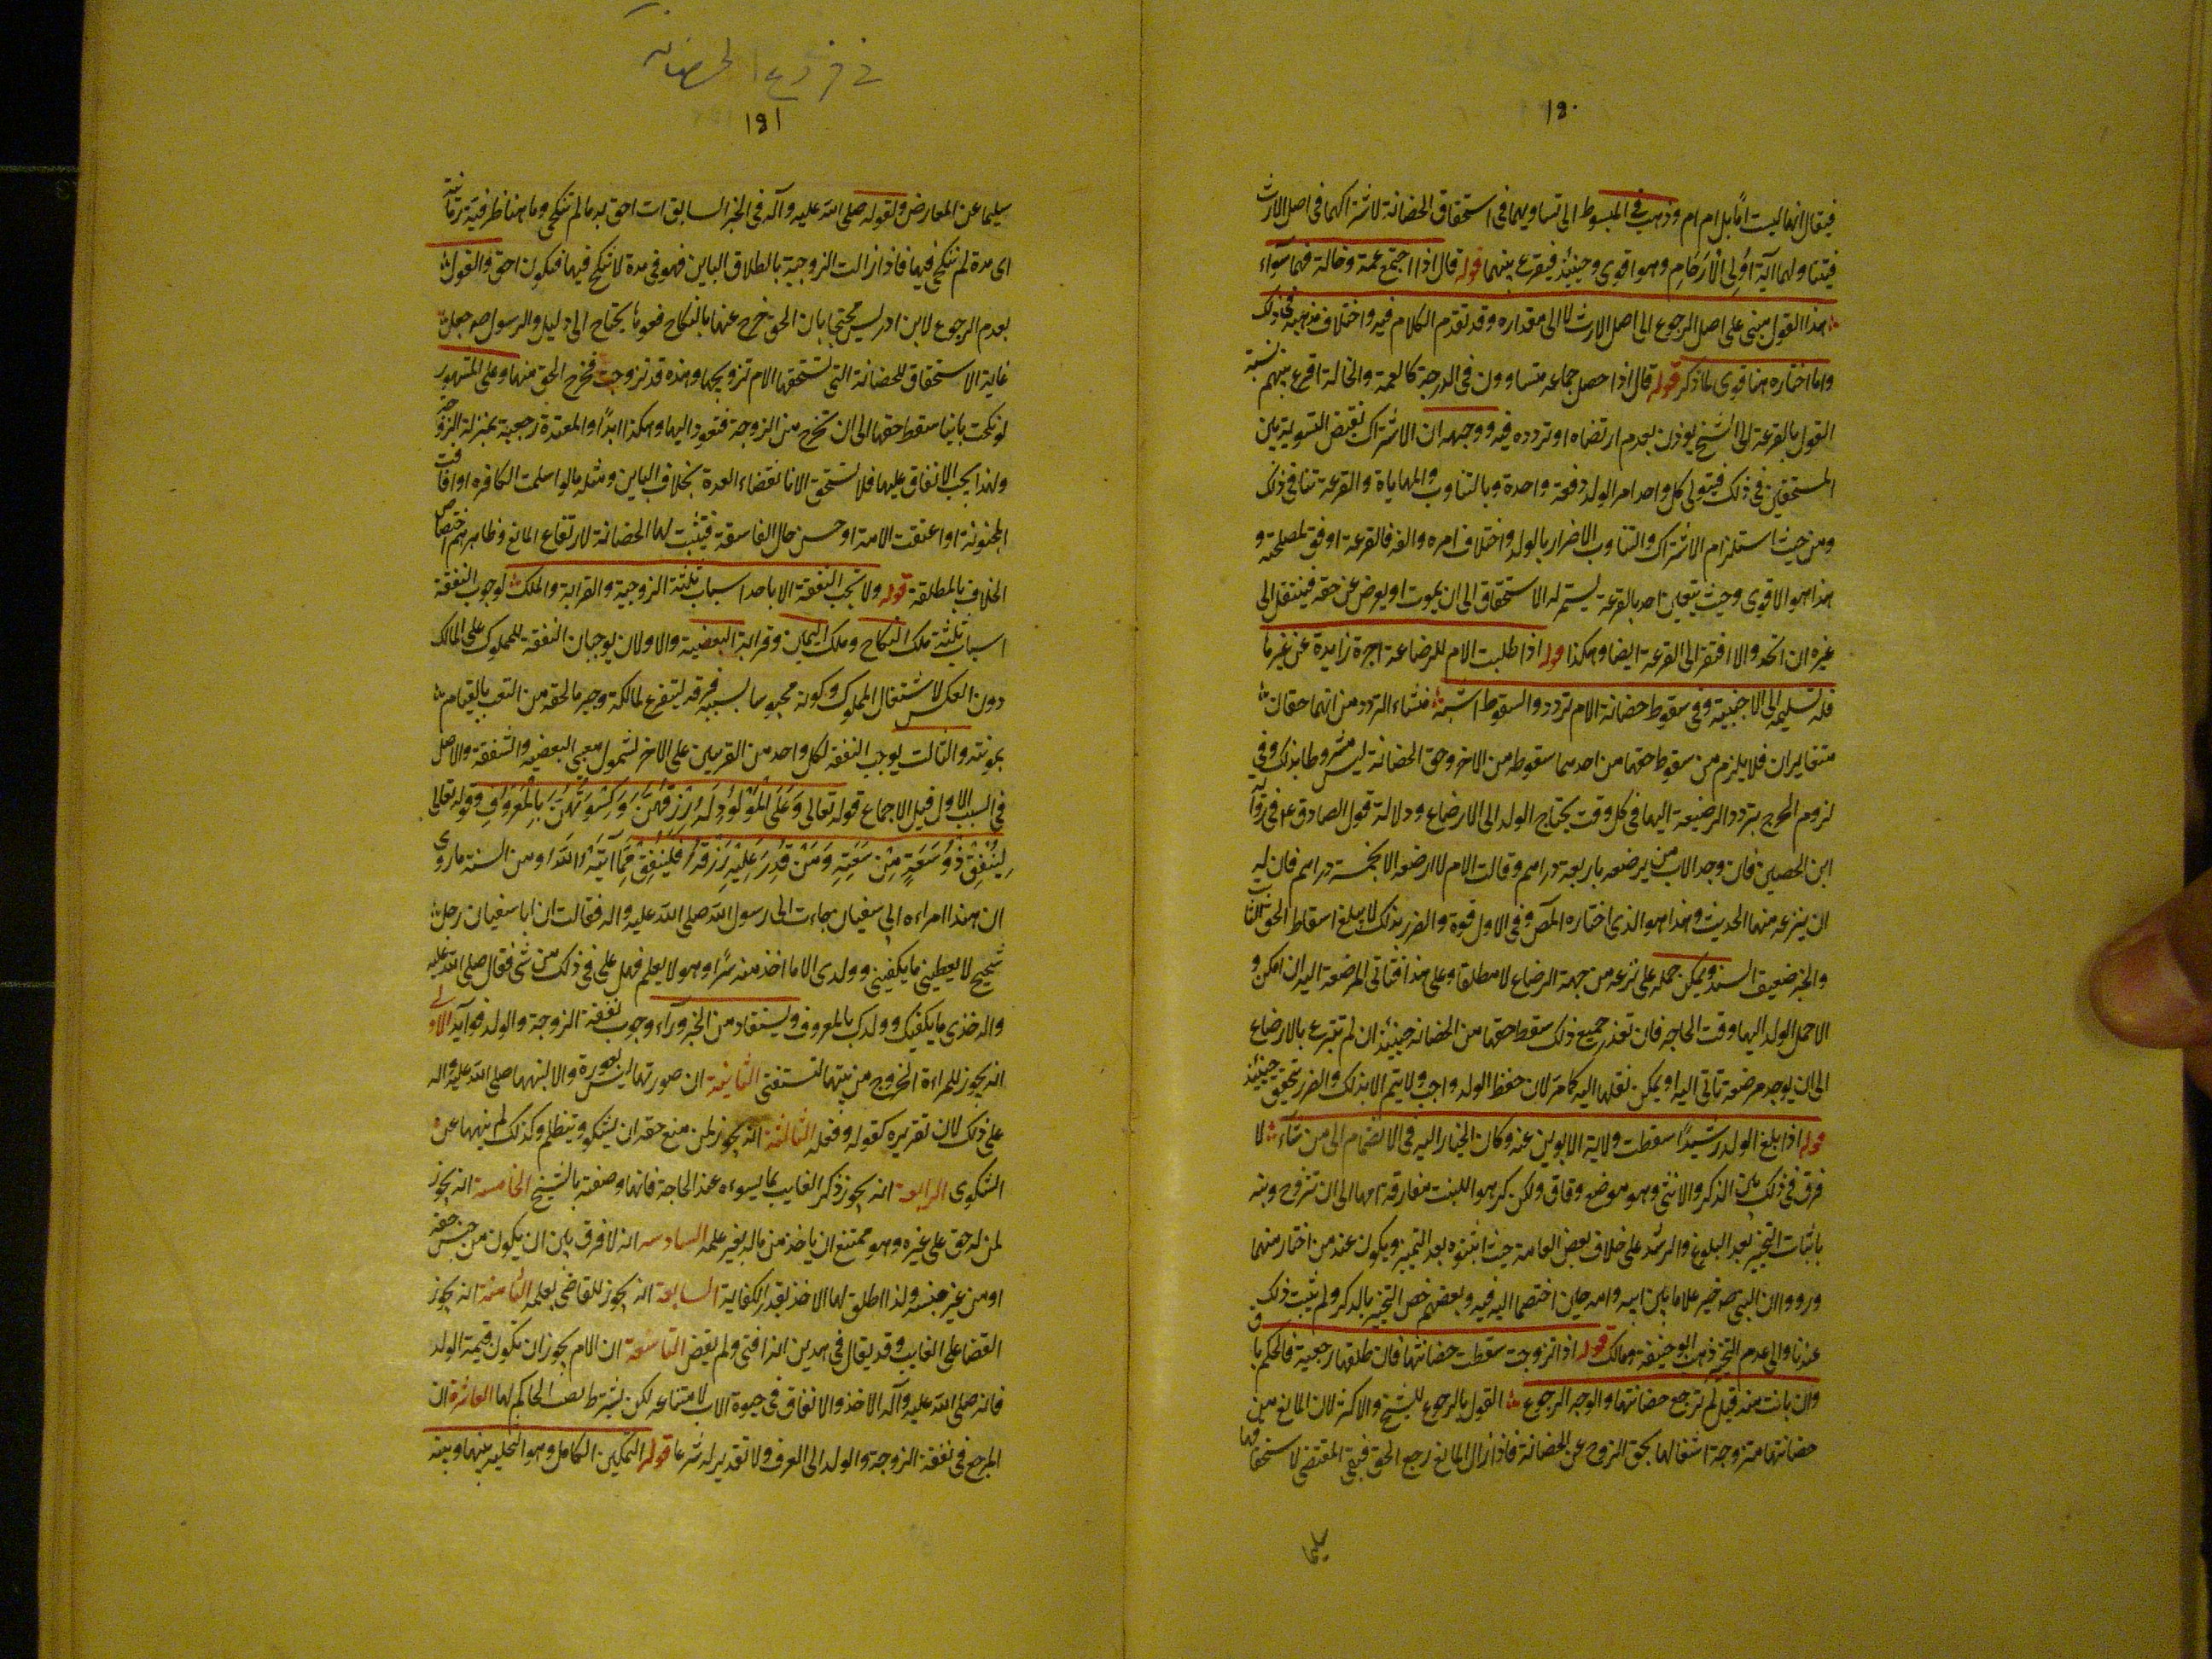 ١٥٠
فيقال انها ليست امّاً بل ام ام وذهب في المبسوط الى تساويهما في استحقاق الحضانة لاشتراكهما في اصل الارث
فيتناولهما آية اولى الارحام وهو اقوى وحينئذ فيقرع بينهما قوله قال اذا اجتمع عمة وخالة فهما سواء
هذا القول مبنى على اصل الرجوع الى اصل الارث لا الى مقداره وقد تقدم الكلام فيه واختلاف مذهبه في ذلك
وما اختاره هنا قوى لما ذكر قوله قال اذا حصل جماعه متساوون في الدرجة كالعمة والخالة اقرع بينهم نسبة
القول بالقرعة الى الشيخ يوذن بعدم ارتضاه او تردده فيه ووجهه ان الاشتراك يقتضى التسوية بين
المستحقين في ذلك فيتولى كل واحد امر الولد دفعة واحدة وبالتناوب والمهاياة والقرعة تنافى ذلك
ومن حيث استلزام الاشتراك والتناوب الاضرار بالولد واختلاف امره والفه فالقرعة اوفق لمصلحته و
هذا هو الاقوى وحيث يتعين احد بالقرعة يستمر له الاستحقاق الى ان يموت او يعرض عن حقه فينتقل الى
غيره ان اتحد والا افتقر الى القرعة ايضا وهكذا قوله اذا طلبت الام للرضاعة اجرة زايدة عن غيرها
فله تسليمه الى الاجنبية وفى سقوط حضانة الام تردد والسقوط اشبه منشاء التردد من انهما حقان
متغايران فلا يلزم من سقوط حقها من احدهما سقوطه من الاخر وحق الحضانة ليس مشروطا بذلك وفى
لزوم الحرج بتردد الرضيعة اليها في كل وقت يحتاج الولد الى الارضاع ودلالة قول الصادق ع في رواية
ابن الحصين فان وجد الاب من يرضعه باربعة دراهم وقالت الام لا ارضعه الا بخمسة دراهم فان له
ان ينزعه منها الحديث وهذا هو الذى اختاره المص وفى الاول قوة والضرر بذلك لا يبلغ اسقاط الحق الثابت
والخبر ضعيف السند ويمكن حمله على نزعه من جهة الرضاع لا مطلقا وعلى هذا فتاتى المرضعة اليه ان امكن و
الا حمل الولد اليها وقت الحاجة فان تعذر جميع ذلك سقط حقها من الحضانة حينئذ ان لم تتبرع بالارضاع
الى ان يوجد مرضعة تاتى اليه او يمكن نقلها اليه كما مر لان حفظ الولد واجب ولا يتم الا بذلك والضرر يتحقق حينئذ
قوله اذا بلغ الولد رشيدًا سقطت ولاية الابوين عنه وكان الخيار اليه في الانضمام الى من شاء لا
فرق في ذلك بين الذكر والانثى وهو موضع وفاق ولكن كرهوا للبنت مفارقة امها الى ان تتزوج ونبه
باثبات التخيير بعد البلوغ والرشد على خلاف بعض العامة حيث اثبتوه بعد التمييز ويكون عند من اختار منهما
ورووا ان النبى ص خير غلاما بين ابيه وامه حين اختصما اليه فيه وبعضهم خص التخيير بالذكر ولم يثبت ذلك
عندنا والى عدم التخيير ذهب ابو حنيفة ومالك قوله اذا تزوجت سقطت حضانتها فان طلقها رجعية فالحكم باق
وان بانت منه قيل لم ترجع حضانتها والوجه الرجوع القول بالرجوع للشيخ والاكثر لان المانع من
حضانتها متزوجة اشغالها بحق الزوج عن الحضانة فاذا زال المانع رجع الحق فبقى المقتضى لاستحقاقها
سليما
في فروع الحضانه
١٥١
سليما عن المعارض ولقوله صلى الله عليه وآله في الخبر السابق انت احق به ما لم تنكحى وما هنا ظرفية زمانية
اى مدة لم تنكحى فيها فاذا زالت الزوجية بالطلاق الباين فهو في مدة لا تنكح فيها فيكون احق والقول
بعدم الرجوع لابن ادريس محتجا بان الحق خرج عنها بالنكاح فعودها يحتاج الى دليل والرسول ص جعل
غاية الاستحقاق للحضانة التى تستحقها الام تزويجها وهذه قد تزوجت فخرج الحق منها وعلى المشهور
لو نكحت ثانيا سقط حقها الى ان تخرج من الزوجة فتعود اليها وهكذا ابدًا والمعتدة رجعية بمنزلة الزوجة
ولهذا يجب الانفاق عليها فلا تستحق الا بانقضاء العدة بخلاف الباين ومثله ما لو اسلمت الكافره او افاقت
المجنونة او اعتقت الامة او حسن حال الفاسقة فيثبت لها الحضانة لارتفاع المانع وظاهرهم اختصاص
الخلاف بالمطلقة قوله ولا تجب النفقة الا باحد اسباب ثلثة الزوجية والقرابة والملك لوجوب النفقة
اسباب ثلثة ملك النكاح وملك اليمين وقرابة البعضية والاولان يوجبان النفقة للمملوك على المالك
دون العكس لاشتغال المملوك وكونه محبوسا بسبب فرقه ليتفرغ لمالكه وجبر ما لحقه من التعب بالقيام
بمونته والثالث يوجب النفقة لكل واحد من القريبين على الاخر لشمول معنى البعضية والشفقة والاصل
في السبب الاول قبل الاجماع قوله تعالى وَعَلَى المَوْلُودِ لَهُ رِزْقُهُنَّ وَكِسْوَتُهُنَّ بِالمَعْرُوفِ وقوله تعالى
لِيُنْفِقْ ذُو سَعَةٍ مِنْ سَعَتِهِ وَمَنْ قُدِرَ عَلَيْهِ رِزْقُهُ فَلْيُنْفِقْ مِمَّا آتَيهُ اللهُ ومن السنة ما روى
ان هندا امراءه ابى سفيان جاءت الى رسول الله صلى الله عليه واله فقالت ان ابا سفيان رجل
شحيح لا يعطينى ما يكفينى وولدى الا ما اخذ منه سرًا وهو لا يعلم فهل على في ذلك من شى فقال صلى الله عليه
واله خذى ما يكفيك وولدك بالمعروف ويستفاد من الخبر وراء وجوب نفقة الزوجة والولد فوايد الاولى
انه يجوز للمراءة الخروج من بيتها لتستفتى الثانية ان صورتها ليس بعورة والا لنبهها صلى الله عليه واله
على ذلك لان تقريره كقوله وفعله الثالثة انه يجوز لمن منع حقه ان يشكو ويتظلم وكذلك لم ينهها عن
الشكوى الرابعة انه يجوز ذكر الغايب بما يسوءه عند الحاجة فانها وصفته بالشح الخامسة انه يجوز
لمن له حق على غيره وهو ممتنع ان ياخذ من ماله بغير علمه السادسه انه لا فرق بين ان يكون من جنس حقه
او من غير جنسه ولذا اطلق لها الاخذ بقدر الكفاية السابعة انه يجوز للقاضى بعلمه الثامنة انه يجوز
القضا على الغايب وقد يقال في هذين انه افتى ولم يقض التاسعة ان الام يجوز ان تكون قيمة الولد
فانه صلى الله عليه وآله الاخذ والانفاق في حيوة الاب لامتناعه لكن يشترط نصب الحاكم لها العاشرة ان
المرجع في نفقة الزوجة والولد الى العرف ولا تقدير له شرعا قوله التمكين الكامل وهو التخلية بينها وبينه